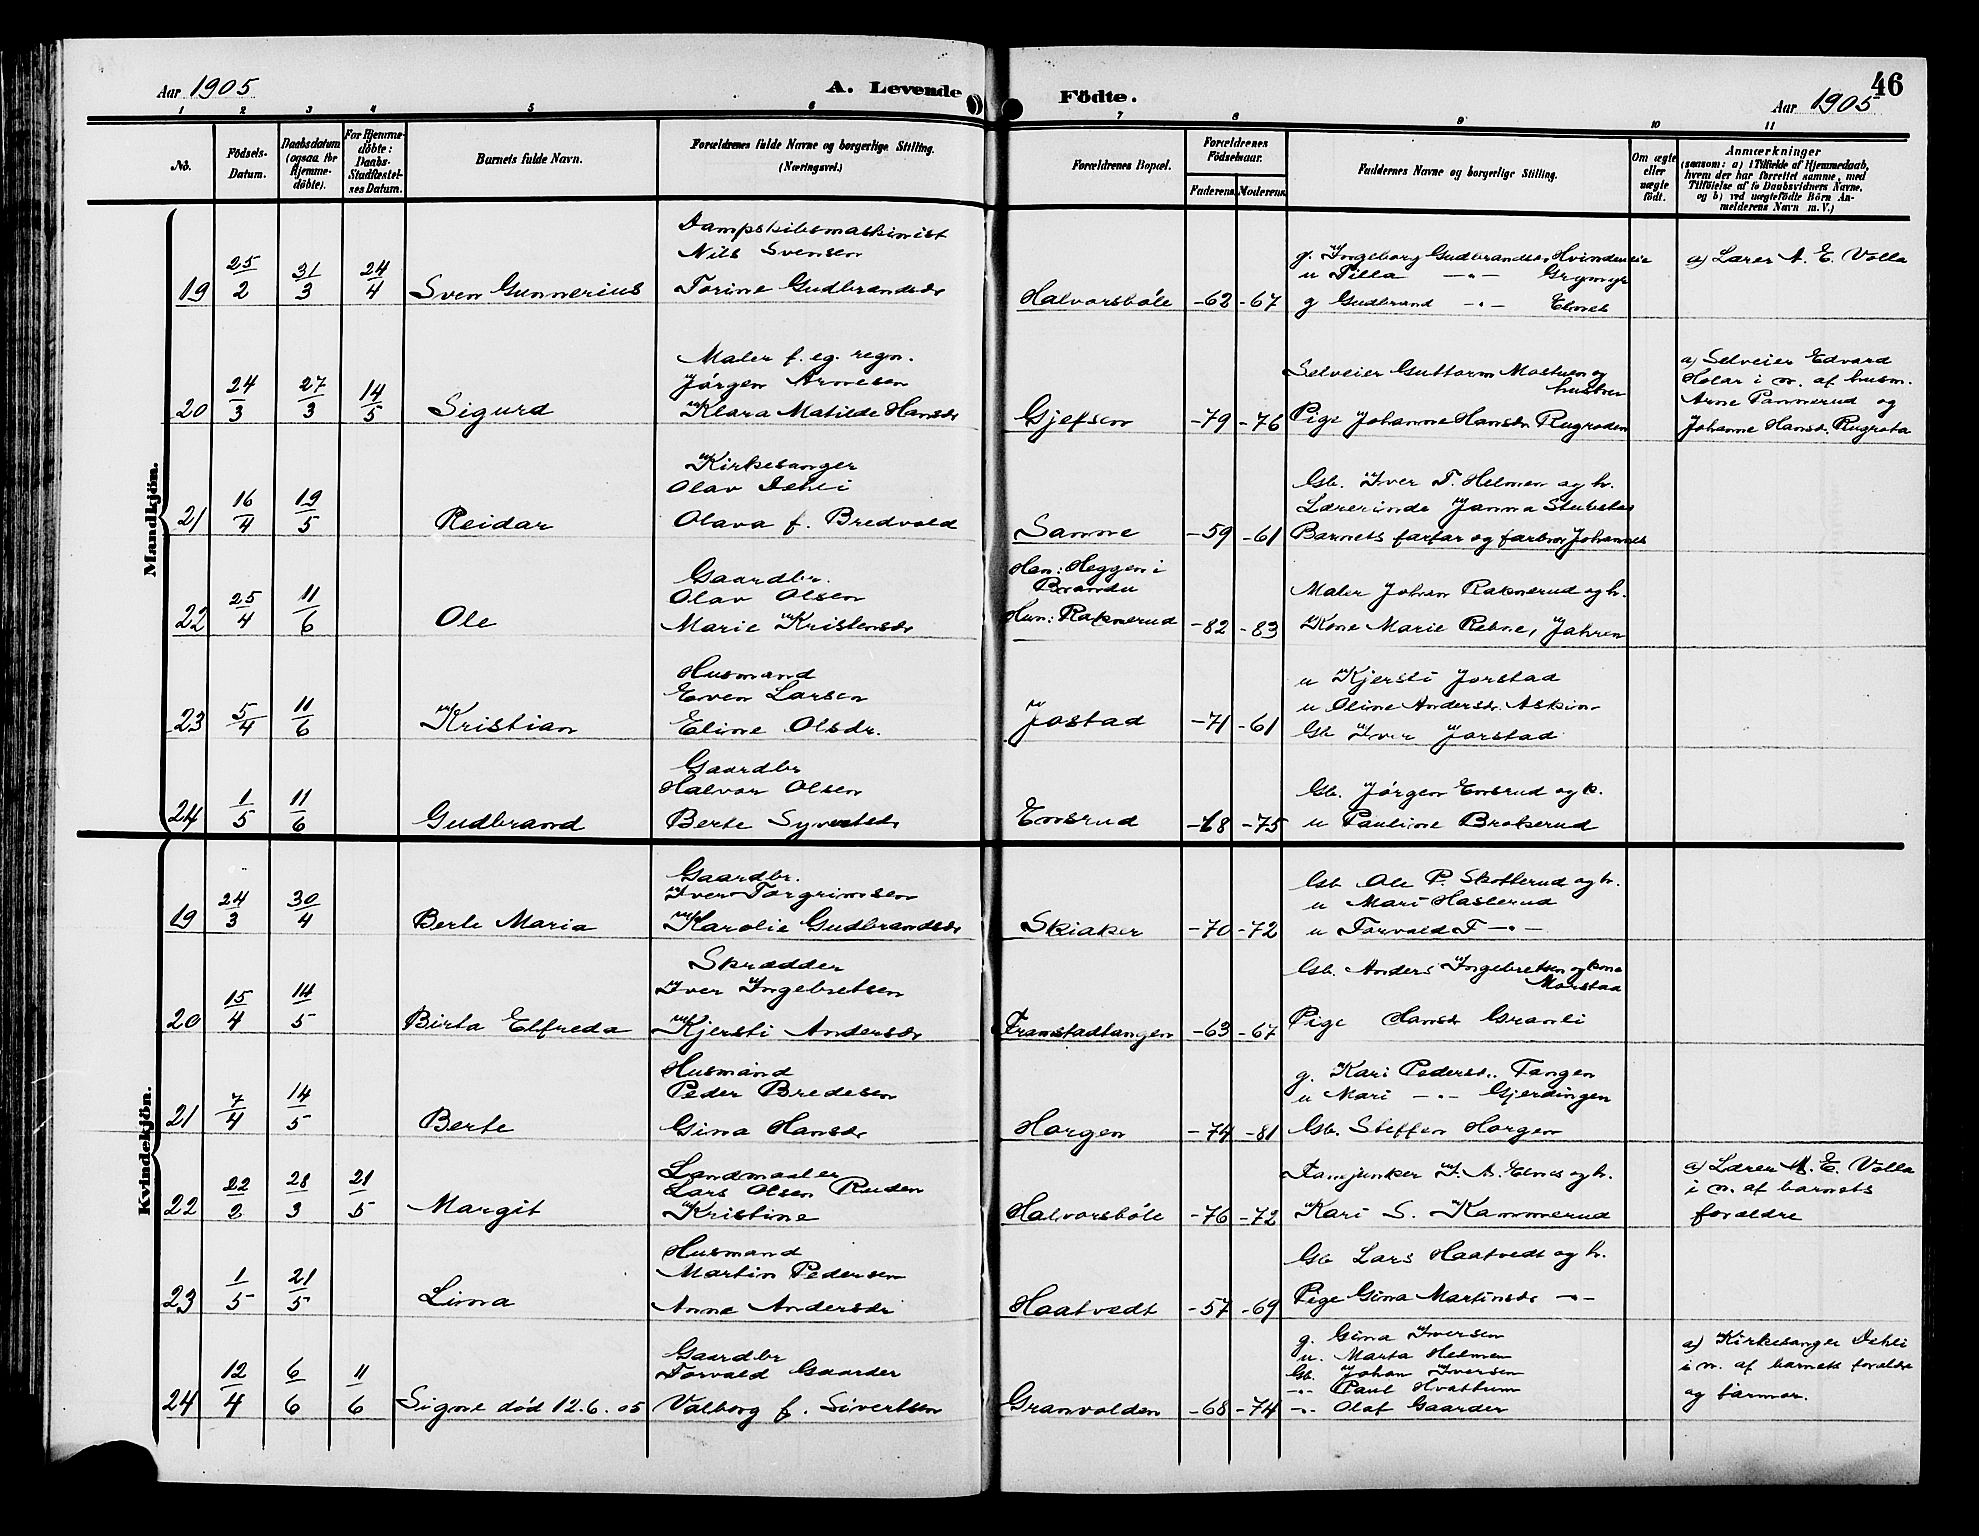 Aar 1905
A. Levende
Födte.
Aar 1905
46
1 2 3 4 5 6 7 8 9 10 11
No.
Födsels-
Datum.
Daabsdatum
(ogsaa for
Hjemme-
döbte).
For Hjemme-
döbte:
Daabs-
Stadfæstel-
ses Datum.
Barnets fulde Navn.
Forældrenes fulde Navne og borgerlige Stilling.
(Næringsvei.)
Forældrenes Bopæl.
Forældrenes
Födselsaar.
Faderens.
Moderens.
Faddernes Navne og borgerlig Stilling.
Om ægte
eller
uægte
födt.
Anmærkninger
(saasom: a) i Tilfælde af Hjemmedaab,
hvem der har forrettet samme, med
Tilföielse af to Daabsvidners Navne.
og b) ved uægtefödte Börn An-
melderens Navn m. V.)
Mandkjön.
Dampskibsmaskinist
Nils Svensen
19 25/2 31/3 24/4 Sven Gunnerius Torine Gudbrandsdr Halvorsböle -62 -67
g. Ingeborg Gudbrandsdr Hvindeneie
u Tilla -"- Grymyr
g Gudbrand -"- Elnes
a) Lærer A. E. Volla
Maler f. eg. regn.
Jörgen Arnesen
20 24/3 27/3 14/5 Sigurd Klara Matilde Hansdr Gjefsen -79 -76
Selveier Guttorm Mostuen og
hustru
Pige Johanne Hansdr Rugroden
a) Selveier Edvard
Holar i n. af husm.
Arne Tammerud og
Johanne Hansd. Rugrota
Kirkesanger
Olav Dehli
21 16/4 19/5 Reidar Olava f. Bredvold Sanne -59 -61
Gb. Iver T. Helmen og h.
Lærerinde Janna Stubstad
Barnets farfar og farbror Johannes
Gaardbr.
Olav Olsen
22 25/4 11/6 Ole Marie Kristensdr
Han: Heggen i
Brandu
Hun: Raknerud -82 -83
Maler Johan Raknerud og h.
Kone Marie Rekne, Jahren
Husmand
Even Larsen
23 5/4 11/6 Kristian Eline Olsdr. Jostad -71 -61
u Kjersti Jorstad
u Oline Andersdr. Askim
Gb Iver Jorstad
Gaardbr
Halvor Olsen
24 1/5 11/6 Gudbrand Berte Syvestdr Ensrud -68 -75
Gb. Jörgen Ensrud og k.
u Pauline Brokerud
Kvindekjön.
Gaardbr.
Iver Torgrimsen
19 24/3 30/4 Berte Maria Karolie Gudbrandsdr Skiaker -70 -72
Gb. Ole P. Skotterud og h.
u Mari Haslerud
u Torvald T -"-
Skrædder
Iver Ingebretsen
20 15/4 14/5 Birta Elfreda Kjersti Andersdr Framstadtangen -63 -67
Gb. Anders Ingebretsen og kone
Morstad
Pige Hansdr Granli
Husmand
Peder Bredesen
21 7/4 14/5 Berte Gina Hansdr Horgen -74 -81
g. Kari Pedersd. Tangen
u Mari -"- Gjerdingen
Gb. Steffen Horgen
Landmaaler
Lars Olsen Ruden
22 22/2 28/3 21/5 Margit Kristine Halvorsböle -76 -72
Fanejunker I. A. Elnes og h.
Kari S. Kammerud
a) Lærer A. E. Volla
i n. af barnets
forældre
Husmand
Martin Pedersen
23 1/5 21/5 Lina Anne Andersdr Haatvedt -57 -69
Gb Lars Haatvedt og h.
Pige Gina Martinsdr -"-
Gaardbr
Torvald Gaarder
24 12/4 6/6 11/6 Signe död 12.6.05 Valborg f. Sivertsen Granvolden -68 -74
g. Gina Iversen
u. Marta Helmen
Gb. Johan Iversen
-"- Paul Hvattum
-"- Olaf Gaarder
a) Kirkesanger Dehli
i n. af barnets forældre
og farmor.